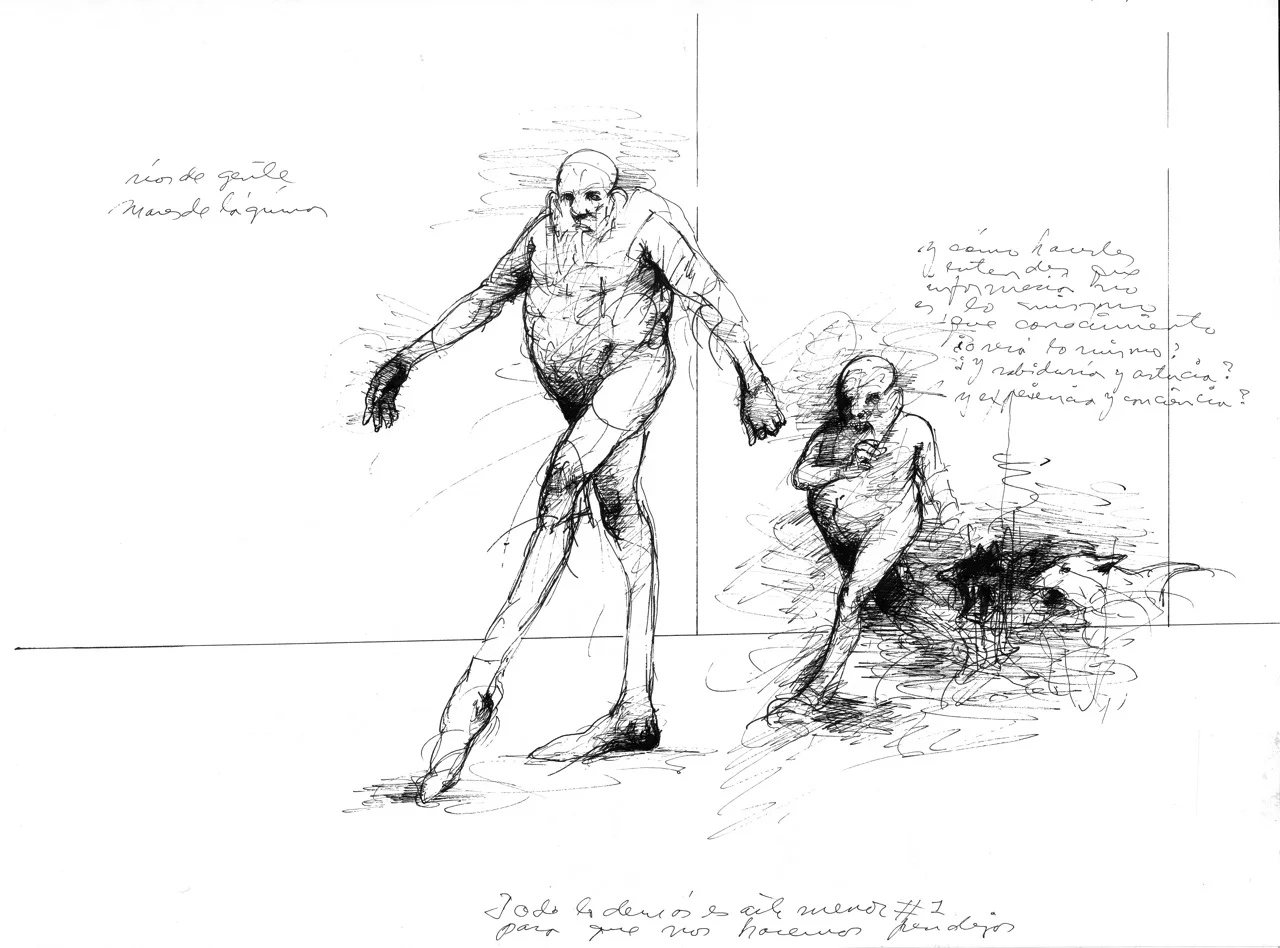 ríos de gente
Mares de lágrimas
y cómo hacerles
entender que
información no
es lo mismo
que conocimiento
o será lo mismo?
¿y sabiduría y astucia?
y experiencia y conciencia?
Todo lo demás es arte menor #1
para que nos hacemos pendejos